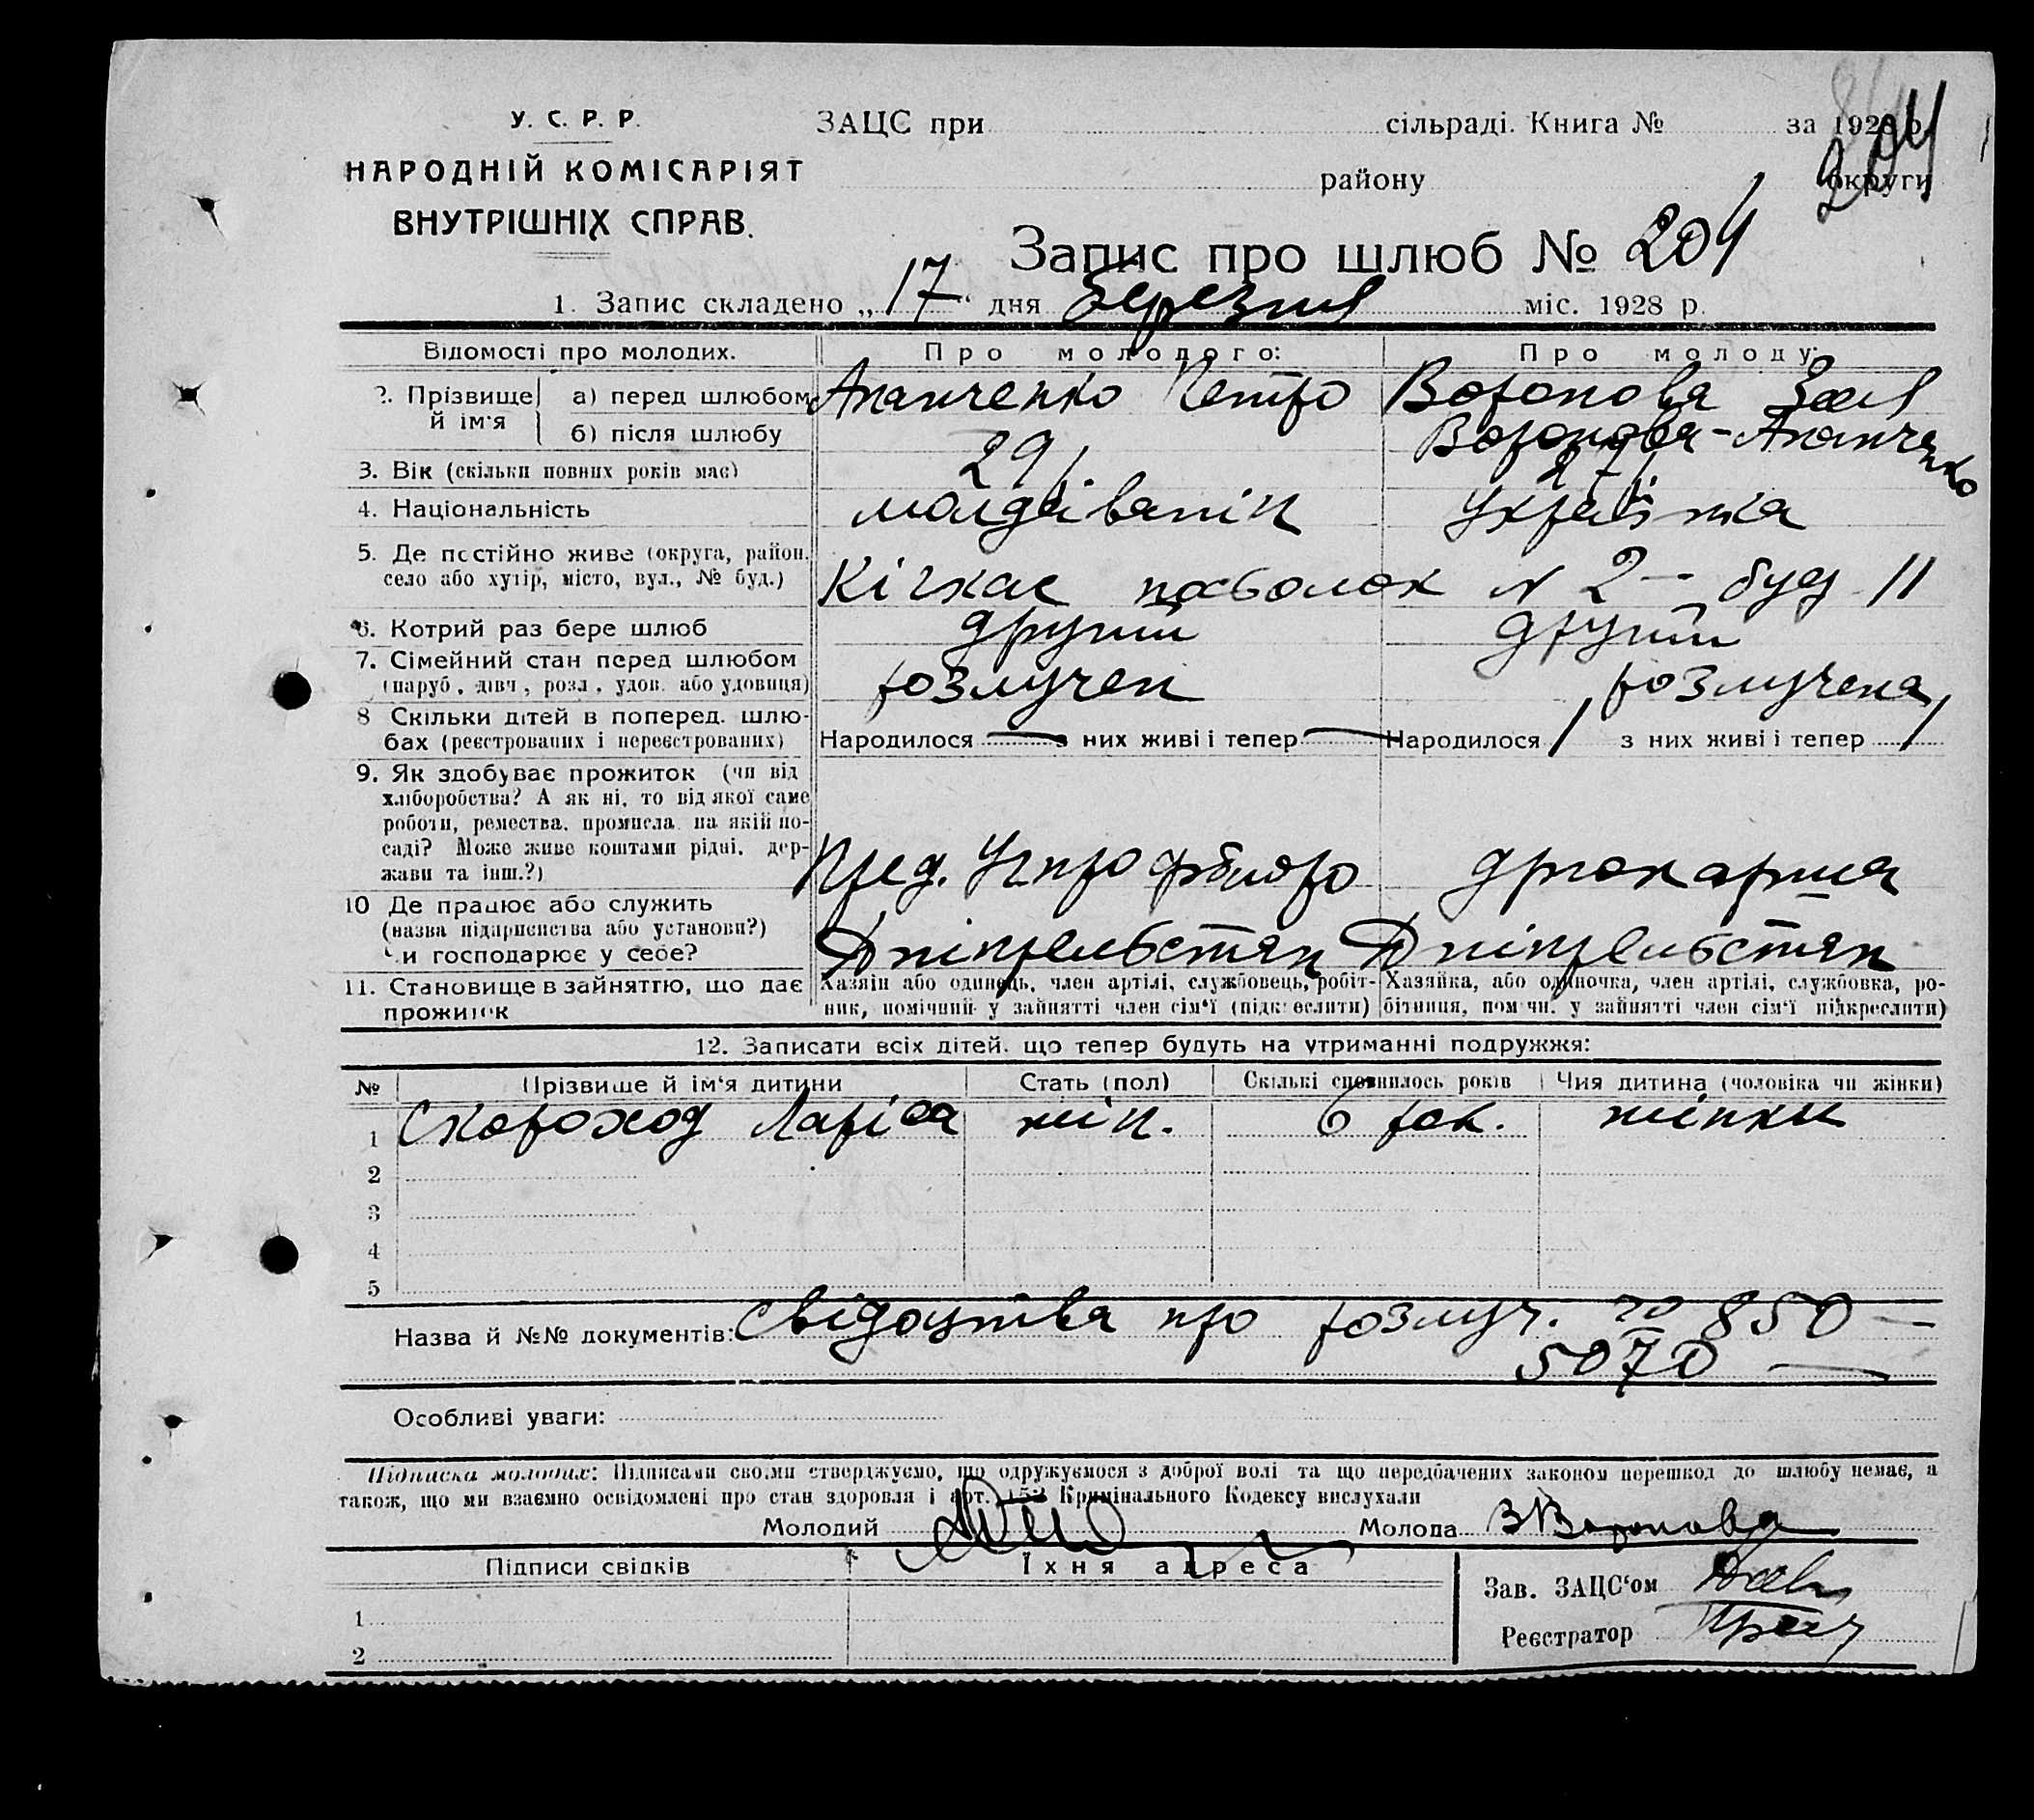 У. С. Р. Р.
НАРОДНІЙ КОМІСАРІЯТ
ВНУТРІШНІХ СПРАВ.
ЗАЦС при сільраді. Книга № за 1928 р.
району округи
204
Запис про шлюб № 204
1. Запис складено „17“ дня березня міс. 1928 р.
Відомості про молодих. Про молодого: Про молоду:
2. Прізвище й ім'я
а) перед шлюбом Апанченко Петро Воронова Зоя
б) після шлюбу Воронова-Апанченко
3. Вік (скільки повних років має) 29 27
4. Національність молдаванін Українка
5. Де постійно живе (округа, район,
село або хутір, місто, вул., № буд.) Кічкас посьолок № 2 – буд 11
6. Котрий раз бере шлюб другий другий
7. Сімейний стан перед шлюбом
(паруб., дівч., розл., удов. або удовиця) розлучен розлучена
8 Скільки дітей в поперед. шлю-
бах (реєстрованих і нереєстрованих) Народилося — з них живі і тепер — Народилося 1 з них живі і тепер 1
9. Як здобуває прожиток (чи від
хліборобства? А як ні, то від якої саме
роботи, ремества, промисла, на якій по-
саді? Може живе коштами рідні, дер-
жави та інш.?) Пред. друкарша
10 Де працює або служить
(назва підприємства або установи?)
Чи господарює у себе? Дніпрельстан Дніпрельстан
11. Становище в зайняттю, що дає
прожиток
Хазяїн або одинець, член артілі, службовець, робіт-
ник, помічний у зайнятті член сім'ї (підкреслити)
Хазяйка, або одиночка, член артілі, службовка, ро-
бітниця, помічн. у зайнятті член сім'ї підкреслити)
12. Записати всіх дітей, що тепер будуть на утриманні подружжя:
№ Прізвище й ім'я дитини Стать (пол) Скількі сповнилось років Чия дитина (чоловіка чи жінки)
1 Скороход Ларіса жін. 6 рок. жінки
2
3
4
5
Назва й №№ документів: Свідоцтва про розлуч. 850 —
5070 —
Особливі уваги:
Підписка молодих: Підписами своїми стверджуємо, що одружуємося з доброї волі та що передбачених законом перешкод до шлюбу немає, а
також, що ми взаємно освідомлені про стан здоровля і арт. 152 Кримінального Кодексу вислухали
Молодий Молода ЗВоронова
Підписи свідків Їхня адреса
Зав. ЗАЦС'ом
1
Реєстратор
2